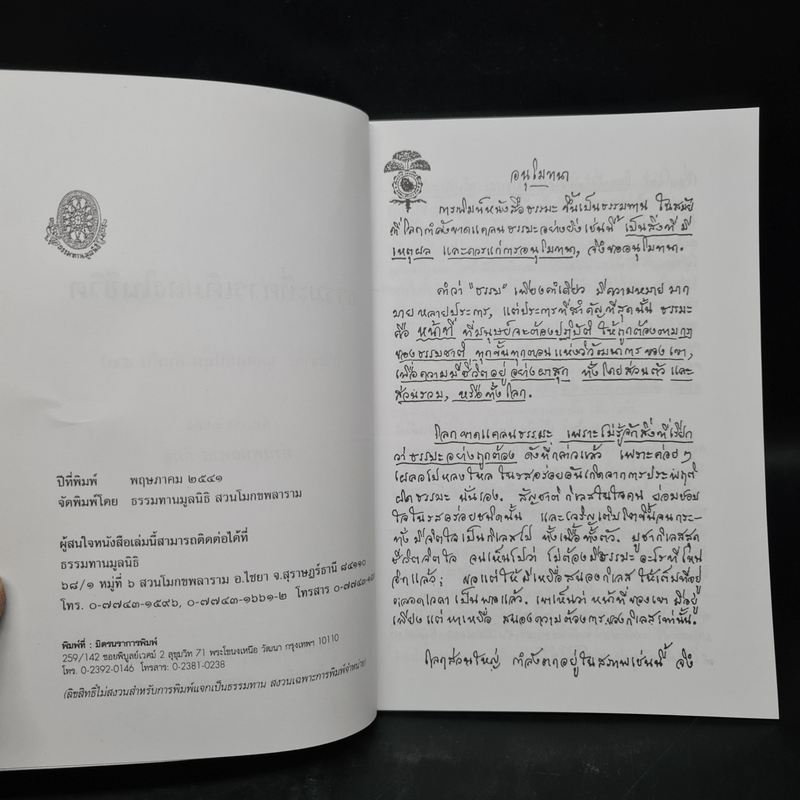 ธรรมทานมูลนิธิ
ปีที่พิมพ์ พฤษภาคม ๒๕๔๑
จัดพิมพ์โดย ธรรมทานมูลนิธิ สวนโมกขพลาราม
ผู้สนใจหนังสือเล่มนี้สามารถติดต่อได้ที่
ธรรมทานมูลนิธิ
๖๘/๑ หมู่ที่ ๖ สวนโมกขพลาราม อ.ไชยา จ.สุราษฎร์ธานี ๘๔๑๑๐
โทร. ๐-๗๗๔๓-๑๕๙๖, ๐-๗๗๔๓-๑๖๖๑-๒ โทรสาร ๐-๗๗๔๓-
พิมพ์ที่ : มิตรนราการพิมพ์
259/142 ซอยพิบูลย์เวศม์ 2 สุขุมวิท 71 พระโขนงเหนือ วัฒนา กรุงเทพฯ 10110
โทร. 0-2392-0146 โทรสาร: 0-2381-0238
(ลิขสิทธิ์ไม่สงวนสำหรับการพิมพ์แจกเป็นธรรมทาน สงวนเฉพาะการพิมพ์จำหน่าย)
อนุโมทนา
การพิมพ์หนังสือธรรมะ ขึ้นเป็นธรรมทาน ในสมัย
ที่โลกกำลังขาดแคลนธรรมะอย่างยิ่งเช่นนี้ เป็นสิ่งที่มี
เหตุผล และควรแก่การอนุโมทนา, จึงขออนุโมทนา.
คำว่า "ธรรม" เพียงคำเดียว มีความหมายมาก
มายหลายประการ, แต่ประการที่สำคัญที่สุดนั้น ธรรมะ
คือ หน้าที่ ที่มนุษย์จะต้องปฏิบัติ ให้ถูกต้องตามกฎ
ของธรรมชาติ ทุกขั้นทุกตอนแห่งวิวัฒนาการของเขา,
เพื่อความมีชีวิตอยู่อย่างผาสุก ทั้งโดยส่วนตัว และ
ส่วนรวม, หรือทั้งโลก.
โลกขาดแคลนธรรมะ เพราะไม่รู้จักสิ่งที่เรียก
ว่าธรรมะอย่างถูกต้อง ดังที่กล่าวแล้ว เพราะค่อยๆ
เผลอไปหลงใหล ในรสอร่อยอันเกิดจากการประพฤติ
ผิดธรรมะ นั่นเอง. สัญชาตกิเลสในใจคน ย่อมชอบ
ใจในรสอร่อยชนิดนั้น และเจริญเติบโตขึ้นจนกระ-
ทั่งมีจิตใจเป็นกิเลสไป ทั้งเนื้อทั้งตัว. บูชากิเลสสุด
ชีวิตจิตใจ จนเห็นไปว่า ไม่ต้องมีธรรมะอะไรที่ไหน
อีกแล้ว; ขอแต่ให้มีเหยื่อสนองกิเลส ให้เต็มที่อยู่
ตลอดเวลา เป็นพอแล้ว. เขาเห็นว่า หน้าที่ของเขา มีอยู่
เพียงแต่ หาเหยื่อ สนองความต้องการของกิเลสเท่านั้น.
โลกส่วนใหญ่ กำลังตกอยู่ในสภาพเช่นนี้ จึง